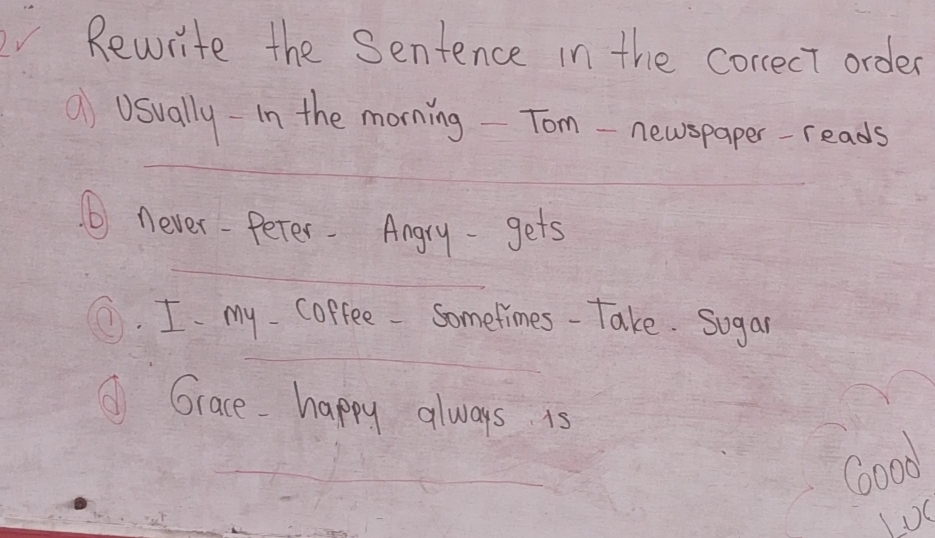 2✓ Rewrite the Sentence in the correct order
a) Usually - in the morning - Tom - newspaper - reads
b) never - Peter - Angry - gets
c). I - my - coffee - Sometimes - Take. Sugar
d) Grace - happy always. is
Good